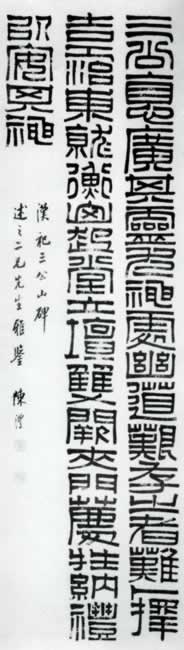 三公惪廣其靈尤神處幽道艱存之者難卜擇
吉土治東就衡山起堂立壇雙闕夾門薦牲納禮
以寧其神
漢祀三公山碑
述之二兄先生雅鑒 陳澧